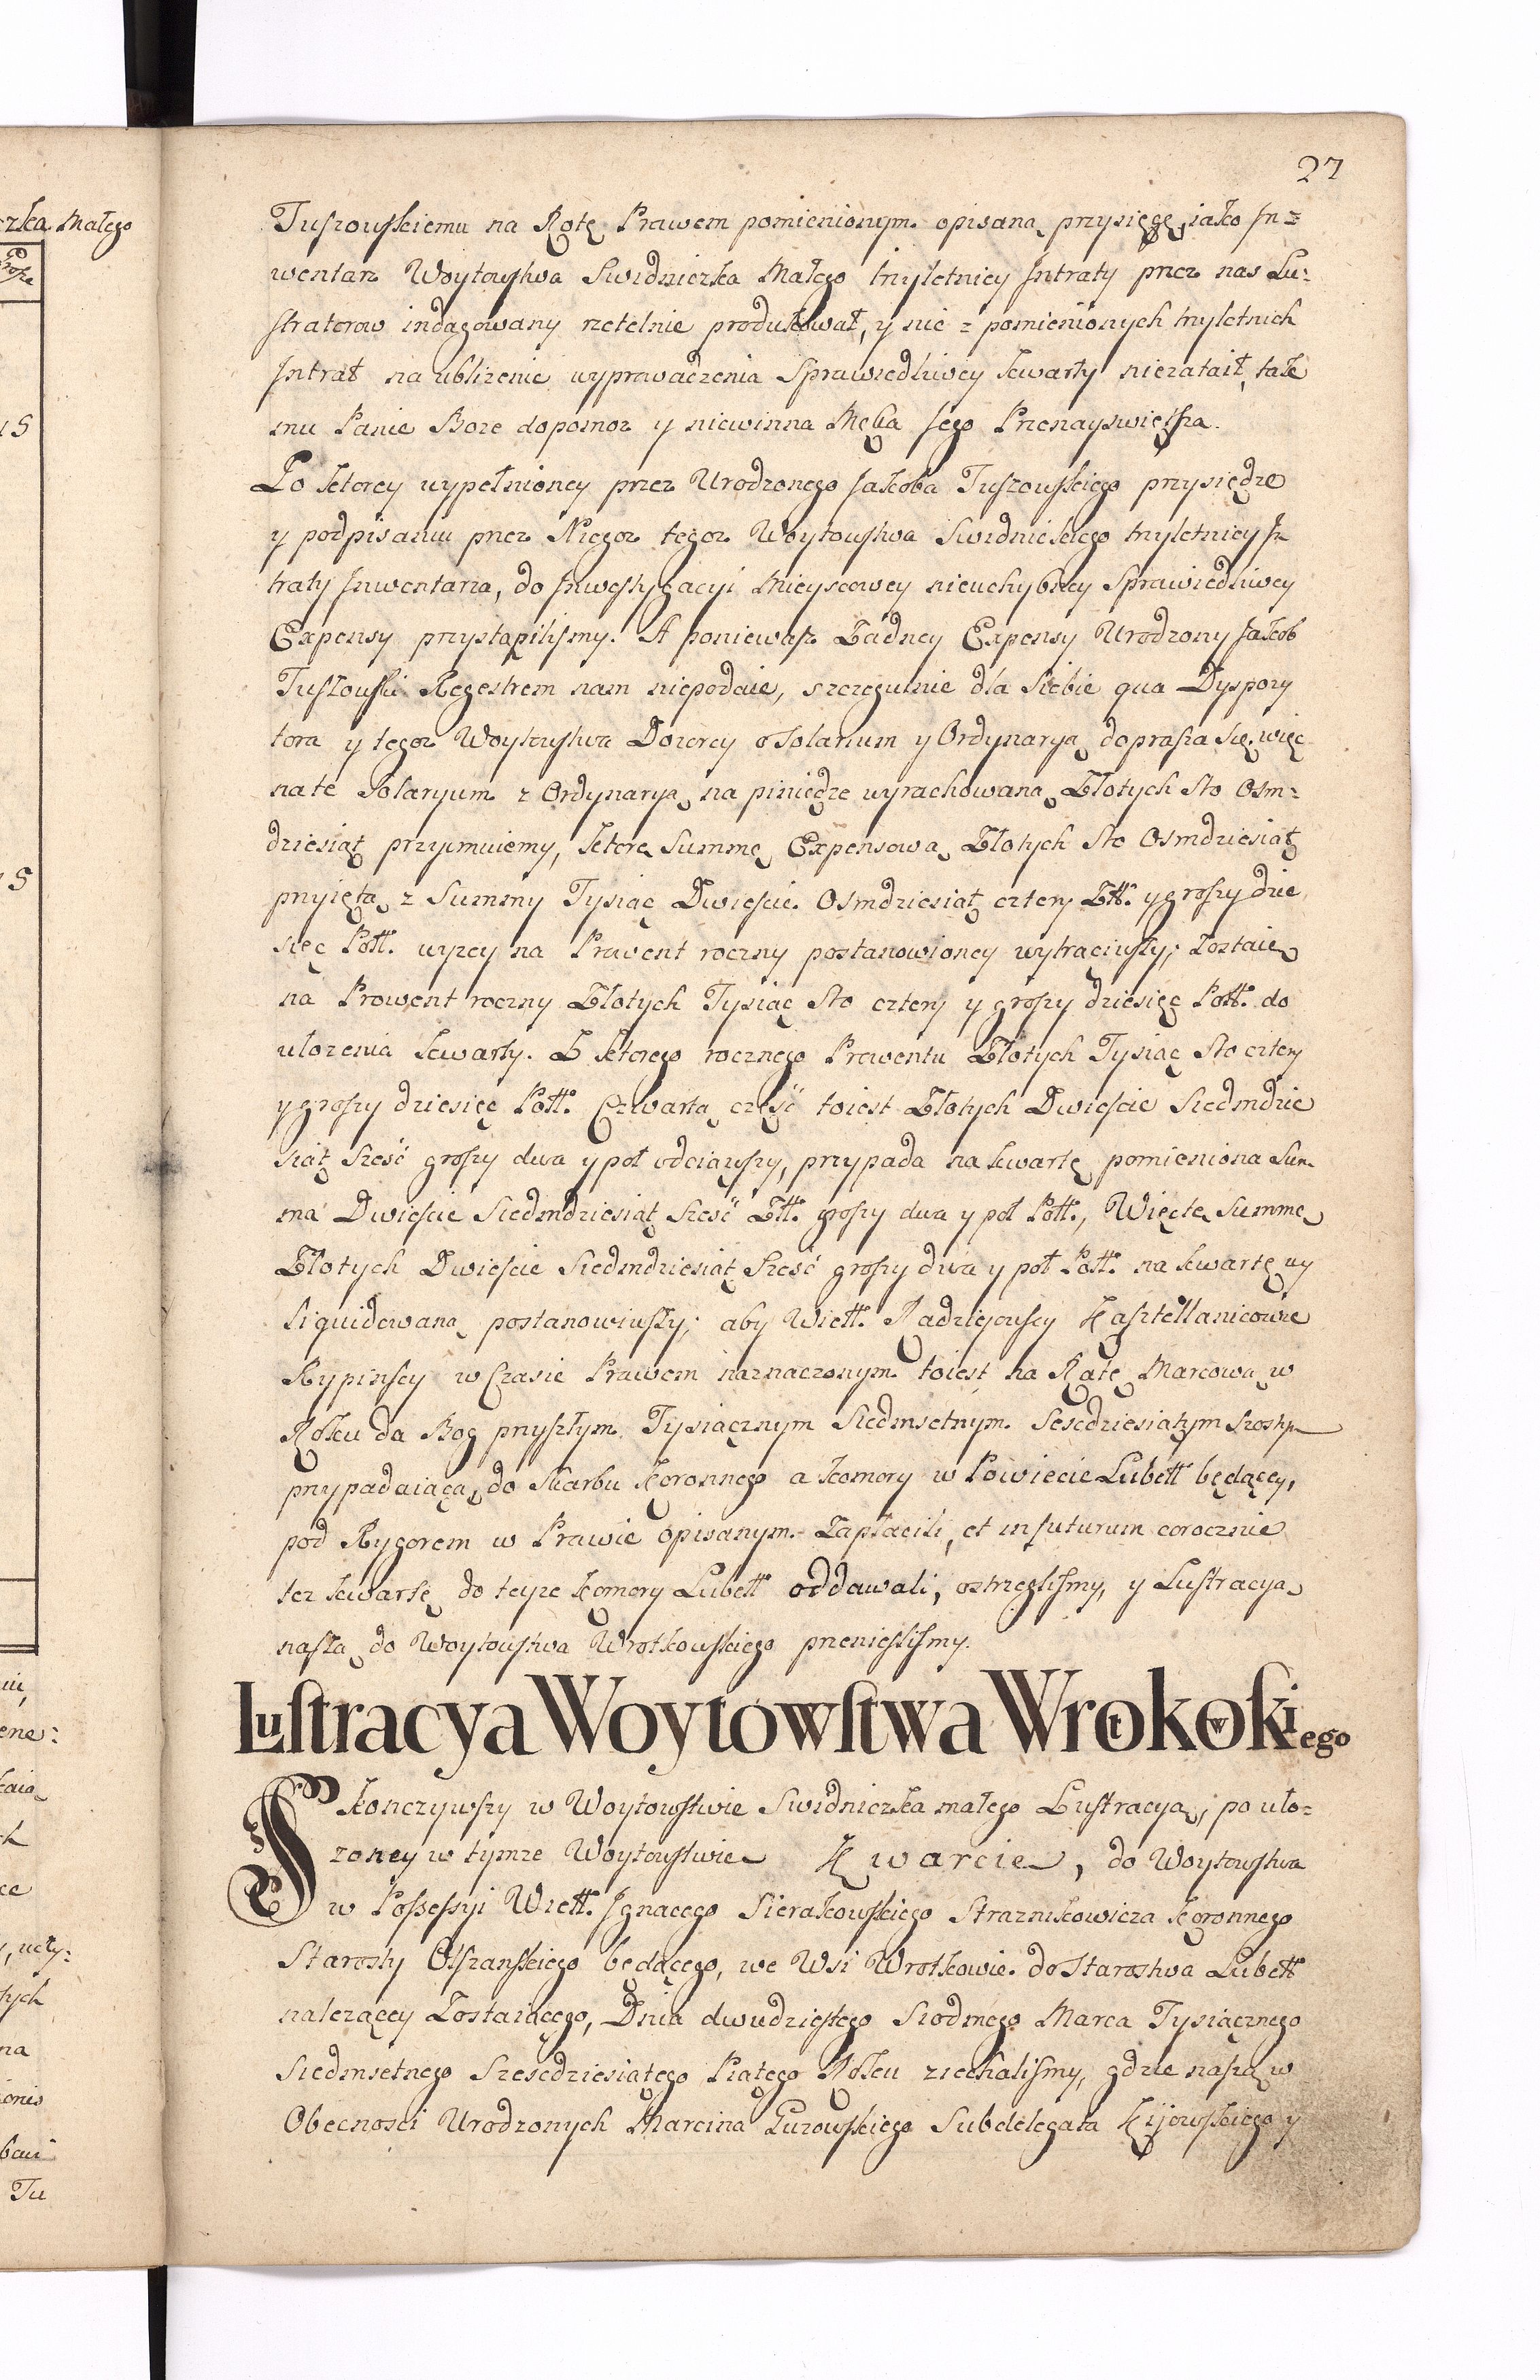 27
Tuszowskiemu na Rotę Prawem pomienionym opisaną przysięgę, iako In=
wentarz Woytowstwa Swidniczka Małego trzyletniey Intraty przez nas Lu=
stratorow indagowany rzetelnie produkował, y nic z pomienionych trzyletnich
Intrat na ubliżenie wyprowadzenia Sprawiedliwey kwarty niezataił, tak
mu Panie Boze dopomoz y niewinna Męka Jego Przenayswiętsza.
Po ktorey wypełnioney przez Urodzonego Jakoba Tuszowskiego przysiędze
y podpisaniu przez Niegoz tegoz Woytowstwa Swidnickiego trzyletniey In
traty Inwentarza, do Inwestygacyi mieyscowey nieuchybney Sprawiedliwey
Expensy przystąpilismy. A poniewasz Żadney Expensy Urodzony Jakob
Tuszowski Regestrem nam niepodaie, szczegulnie dla siebie qua Dyspozy
tora y tegoz Woytowstwa Dozorcy o Solarium y Ordynaryą doprasza się, więc
na te Solaryum z Ordynaryą na piniędze wyrachowaną Złotych Sto Osm=
dziesiąt przyimuiemy, ktorą Summę Expensową Złotych Sto Osmdziesiąt
przyiętą z Summy Tysiąc Dwiescie Osmdziesiąt cztery Złł. y groszy dzie
sięc Poll. wyzey na Prowent roczny postanowioney wytrąciwszy, zostaie
na Prowent roczny Złotych Tysiąc Sto cztery y groszy dziesięc Poll. do
ułozenia kwarty. Z ktorego rocznego Prowentu Złotych Tysiąc Sto cztery
y groszy dziesięc Poll. Czwartą częsć toiest Złotych Dwiescie Siedmdzie
siąt Szesć groszy dwa y poł odciąwszy, przypada na kwartę pomieniona Sum
ma Dwiescie Siedmdziesiąt Szesć Złł. groszy dwa y poł Poll., Więc tę Summę
Złotych Dwiescie Siedmdziesiąt Szesć groszy dwa y poł Poll. na kwartę wy
liquidowaną postanowiwszy, aby Wiell. Nadziejowscy Kasztellanicowie
Rypinscy w Czasie Prawem naznaczonym toiest na Ratę Marcową w
Roku da Bog przyszłym Tysiącznym Siedmsetnym Sescdziesiątym Szostym
przypadaiącą, do Skarbu Koronnego a komory w Powiecie Lubell będącey,
pod Rygorem w Prawie opisanym zapłacili, et in futurum corocznie
tez kwartę do teyze komory Lubell oddawali, ostrzeglismy, y Lustracyą
naszą do Woytowstwa Wrotkowskiego przenieslismy.
Lustracya Woytowstwa Wrotkowskiego
Skonczywszy w Woytowstwie Swidniczka małego Lustracyą, po uło=
zoney w tymze Woytowstwie Kwarcie, do Woytowstwa
w Possessyi Wiell. Ignacego Sierakowskiego Straznikowicza Koronnego
Starosty Olszanskiego będącego, we Wsi Wrotkowie do Starostwa Lubell
nalezącey zostaiącego, Dnia dwudziestego Siodmego Marca Tysiącznego
Siedmsetnego Szescdziesiątego Piątego Roku ziechalismy, gdzie naszą w
Obecnosci Urodzonych Marcina Gurowskiego Subdelegata Kijowskiego y